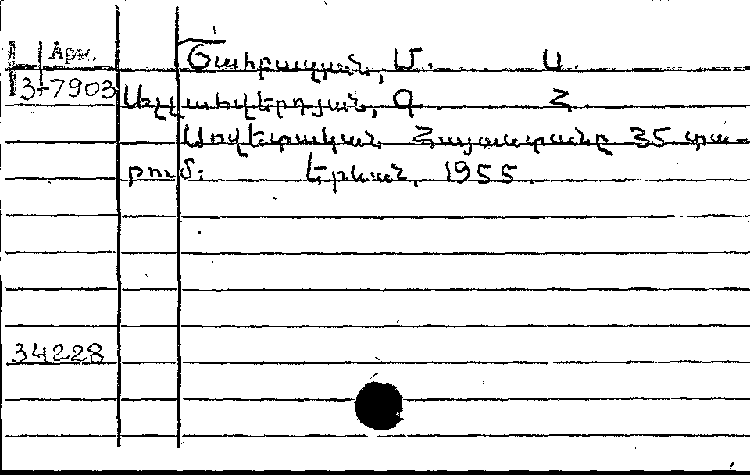 Арм. Ծաիրապյան, Մ. Ա.
3-7903 Ալլախվերդյան, Գ. Հ.
Սովետական Հայաստանը 35 տա-
րում: Երևան, 1955.
34228